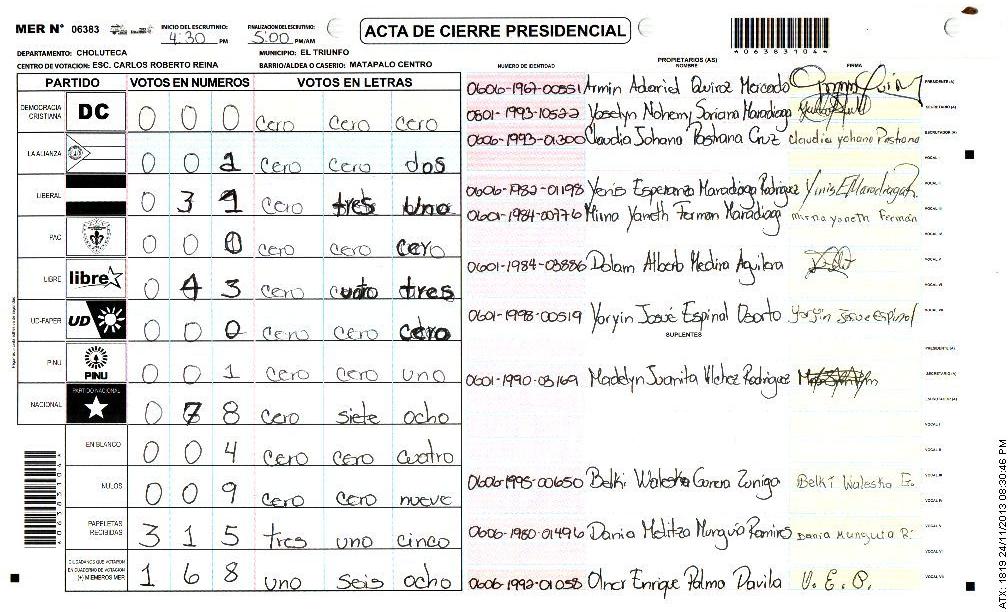 MER N° 06383
INICIO DEL ESCRUTINIO: 4:30 PM
FINALIZACION DEL ESCRUTINIO: 5:00 PM/AM
ACTA DE CIERRE PRESIDENCIAL
4063831044
DEPARTAMENTO: CHOLUTECA
MUNICIPIO: EL TRIUNFO
CENTRO DE VOTACION: ESC. CARLOS ROBERTO REINA
BARRIO/ALDEA O CASERIO: MATAPALO CENTRO
PARTIDO VOTOS EN NUMEROS VOTOS EN LETRAS
DEMOCRACIA CRISTIANA DC 0 0 0 cero cero cero
LA ALIANZA 0 0 2 cero cero dos
LIBERAL 0 3 1 cero tres uno
PAC 0 0 0 cero cero cero
LIBRE libre 0 4 3 cero cuatro tres
UD-FAPER UD 0 0 0 cero cero cero
PINU PINU 0 0 1 cero cero uno
NACIONAL PARTIDO NACIONAL 0 7 8 cero siete ocho
EN BLANCO 0 0 4 cero cero cuatro
NULOS 0 0 9 cero cero nueve
PAPELETAS RECIBIDAS 3 1 5 tres uno cinco
CIUDADANOS QUE VOTARON EN CUADERNO DE VOTACION (+) MIEMBROS MER 1 6 8 uno seis ocho
PROPIETARIOS (AS)
NUMERO DE IDENTIDAD NOMBRE FIRMA
0606-1967-00551 Armin Adariel Quiroz Mercado PRESIDENTE (A)
0801-1993-10522 Yoselyn Nohemy Soriano Maradiaga SECRETARIO (A)
0606-1993-01300 Claudia Johana Pastrana Cruz claudia yohana Pastrana ESCRUTADOR (A)
VOCAL I
0606-1982-01198 Yenis Esperanza Maradiaga Rodriguez VOCAL II
0601-1984-00776 Mirna Yaneth Ferman Maradiaga mirna yaneth Ferman VOCAL III
VOCAL IV
0601-1984-03886 Dolam Alberto Medina Aguilera VOCAL V
VOCAL VI
0601-1998-00519 Yoryin Josue Espinal Osorto yoryin Josue Espinal VOCAL VII
SUPLENTES
PRESIDENTE (A)
0601-1990-03169 Madelyn Juanita Vlchez Rodriguez SECRETARIO (A)
ESCRUTADOR (A)
VOCAL I
VOCAL II
0606-1995-00650 Belki Waleska Zuniga Belki Waleska VOCAL III
VOCAL IV
0606-1980-01496 Dania Melitza Munguia Ramires Dania Munguia R. VOCAL V
VOCAL VI
0606-1992-01058 Olner Enrique Palma Davila O. E. P. VOCAL VII
4063831044
ATX:1819 24/11/2013 08:30:46 PM